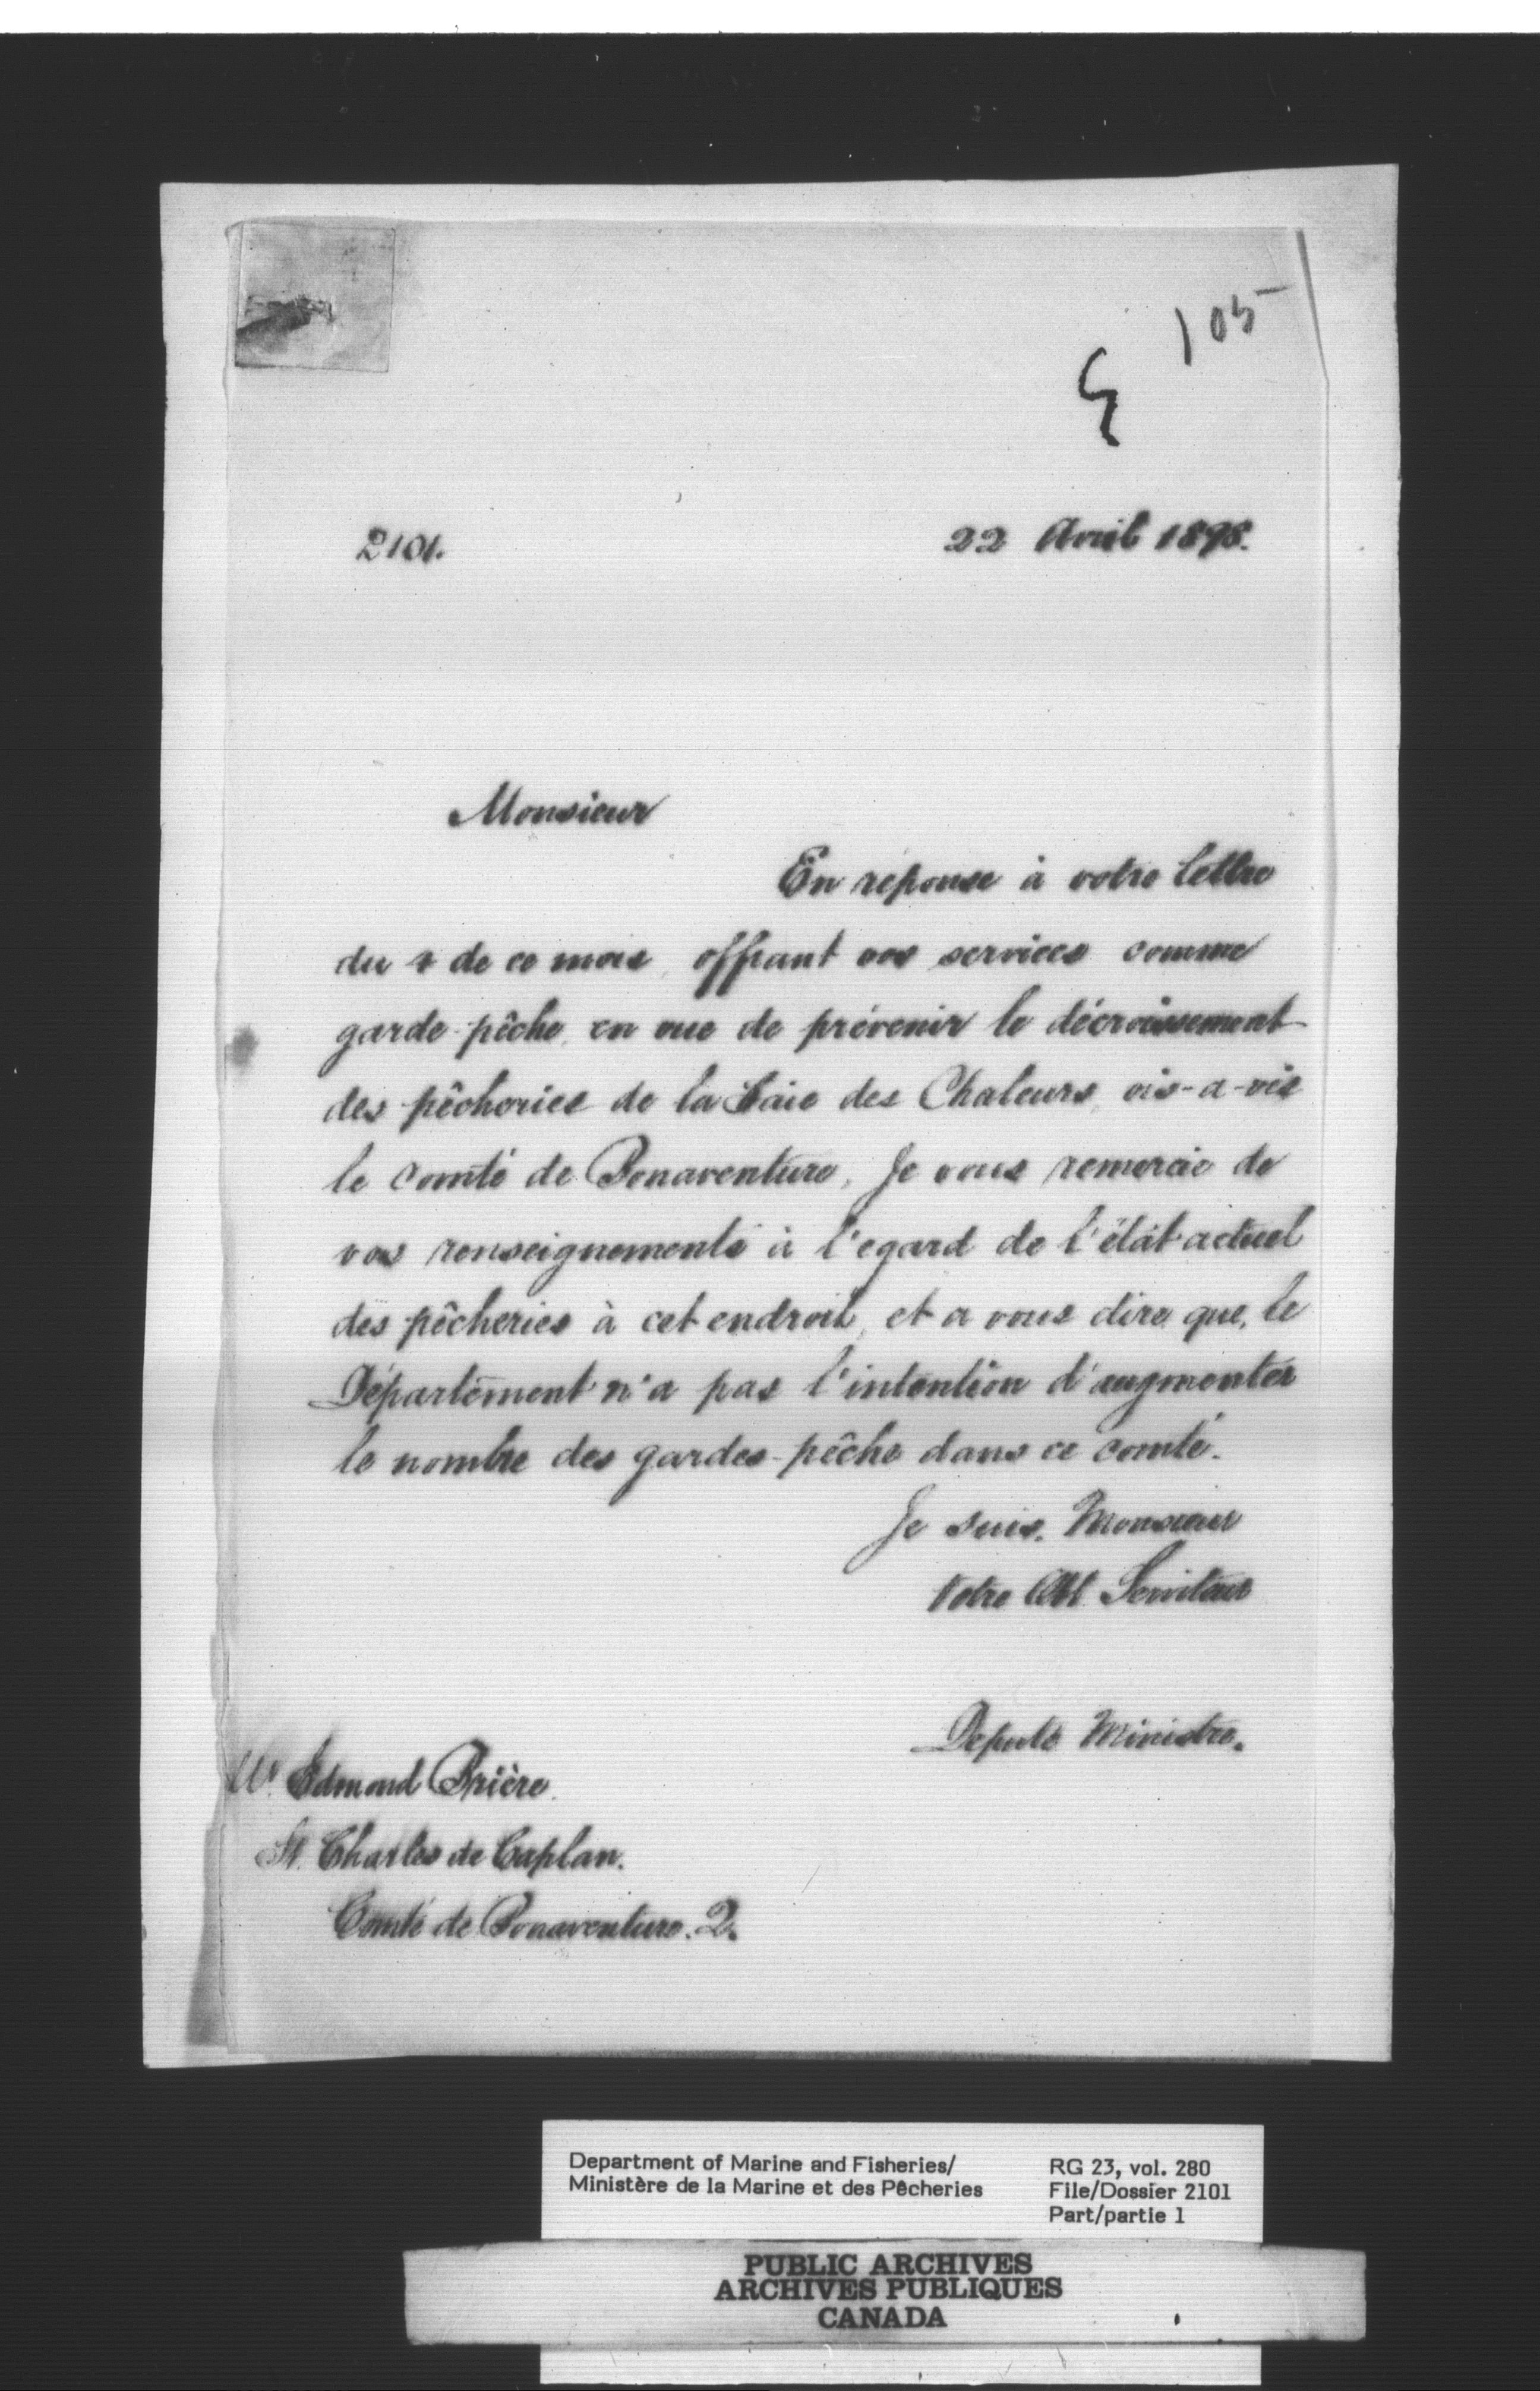 105
2101.
22 Avril 1898.
Monsieur
En réponse à votre lettre
du de ce mois, offrant vos services comme
garde-pêche, en vue de prévenir le décroissement
des pêcheries de la Baie des Chaleurs, vis-a-vis
le comté de Bonaventure, Je vous remercie de
vos renseignements à l'egard de l'état actuel
des pêcheries à cet endroit, et a vous dire que, le
Département n'a pas l'intention d'augmenter
le nombre des gardes-pêche dans ce comté.
Je suis, Monsieur
Votre Obt Serviteur
Deputé Ministre.
Mr Edmond Prière.
St. Charles de Caplan.
Comté de Bonaventure. Q.
Department of Marine and Fisheries/
Ministère de la Marine et des Pêcheries
RG 23, vol. 280
File/Dossier 2101
Part/partie 1
PUBLIC ARCHIVES
ARCHIVES PUBLIQUES
CANADA